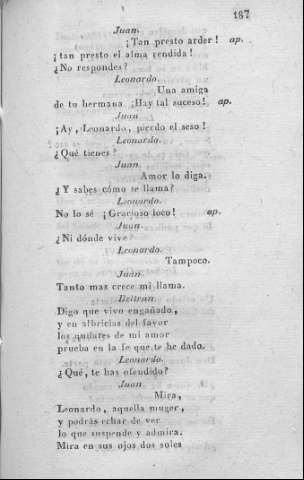 187
Juan.
¡Tan presto arder! ap.
¡tan presto el alma rendida!
¿No respondes?
Leonardo.
Una amiga
de tu hermana ¡Hay tal suceso! ap.
Juan
¡Ay, Leonardo, pierdo el seso!
Leonardo.
¿Qué tienes?
Juan.
Amor lo diga.
¿Y sabes cómo se llama?
Leonardo.
No lo sé ¡Gracioso loco! ap.
Juan
¿Ni dónde vive?
Leonardo.
Tampoco.
Juan.
Tanto mas crece mi llama.
Beltran.
Digo que vivo engañado,
y en albricias del favor
los quilates de mi amor
prueba en la fe que te he dado.
Leonardo.
¿Qué, te has ofendido?
Juan.
Mira,
Leonardo, aquella muger,
y podrás echar de ver
lo que suspende y admira.
Mira en sus ojos dos soles